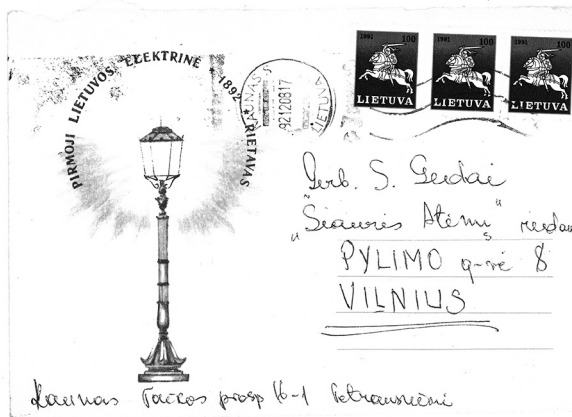 PIRMOJI LIETUVOS ELEKTRINĖ 1892 RIETAVAS
KAUNAS
92120817
LIETUVA
1991 100
LIETUVA
1991 100
LIETUVA
1991 100
LIETUVA
Gerb. S. Gedai
"Šiaurės Atėnų"
PYLIMO g-vė 8
VILNIUS
Kaunas Taikos prosp 16-1